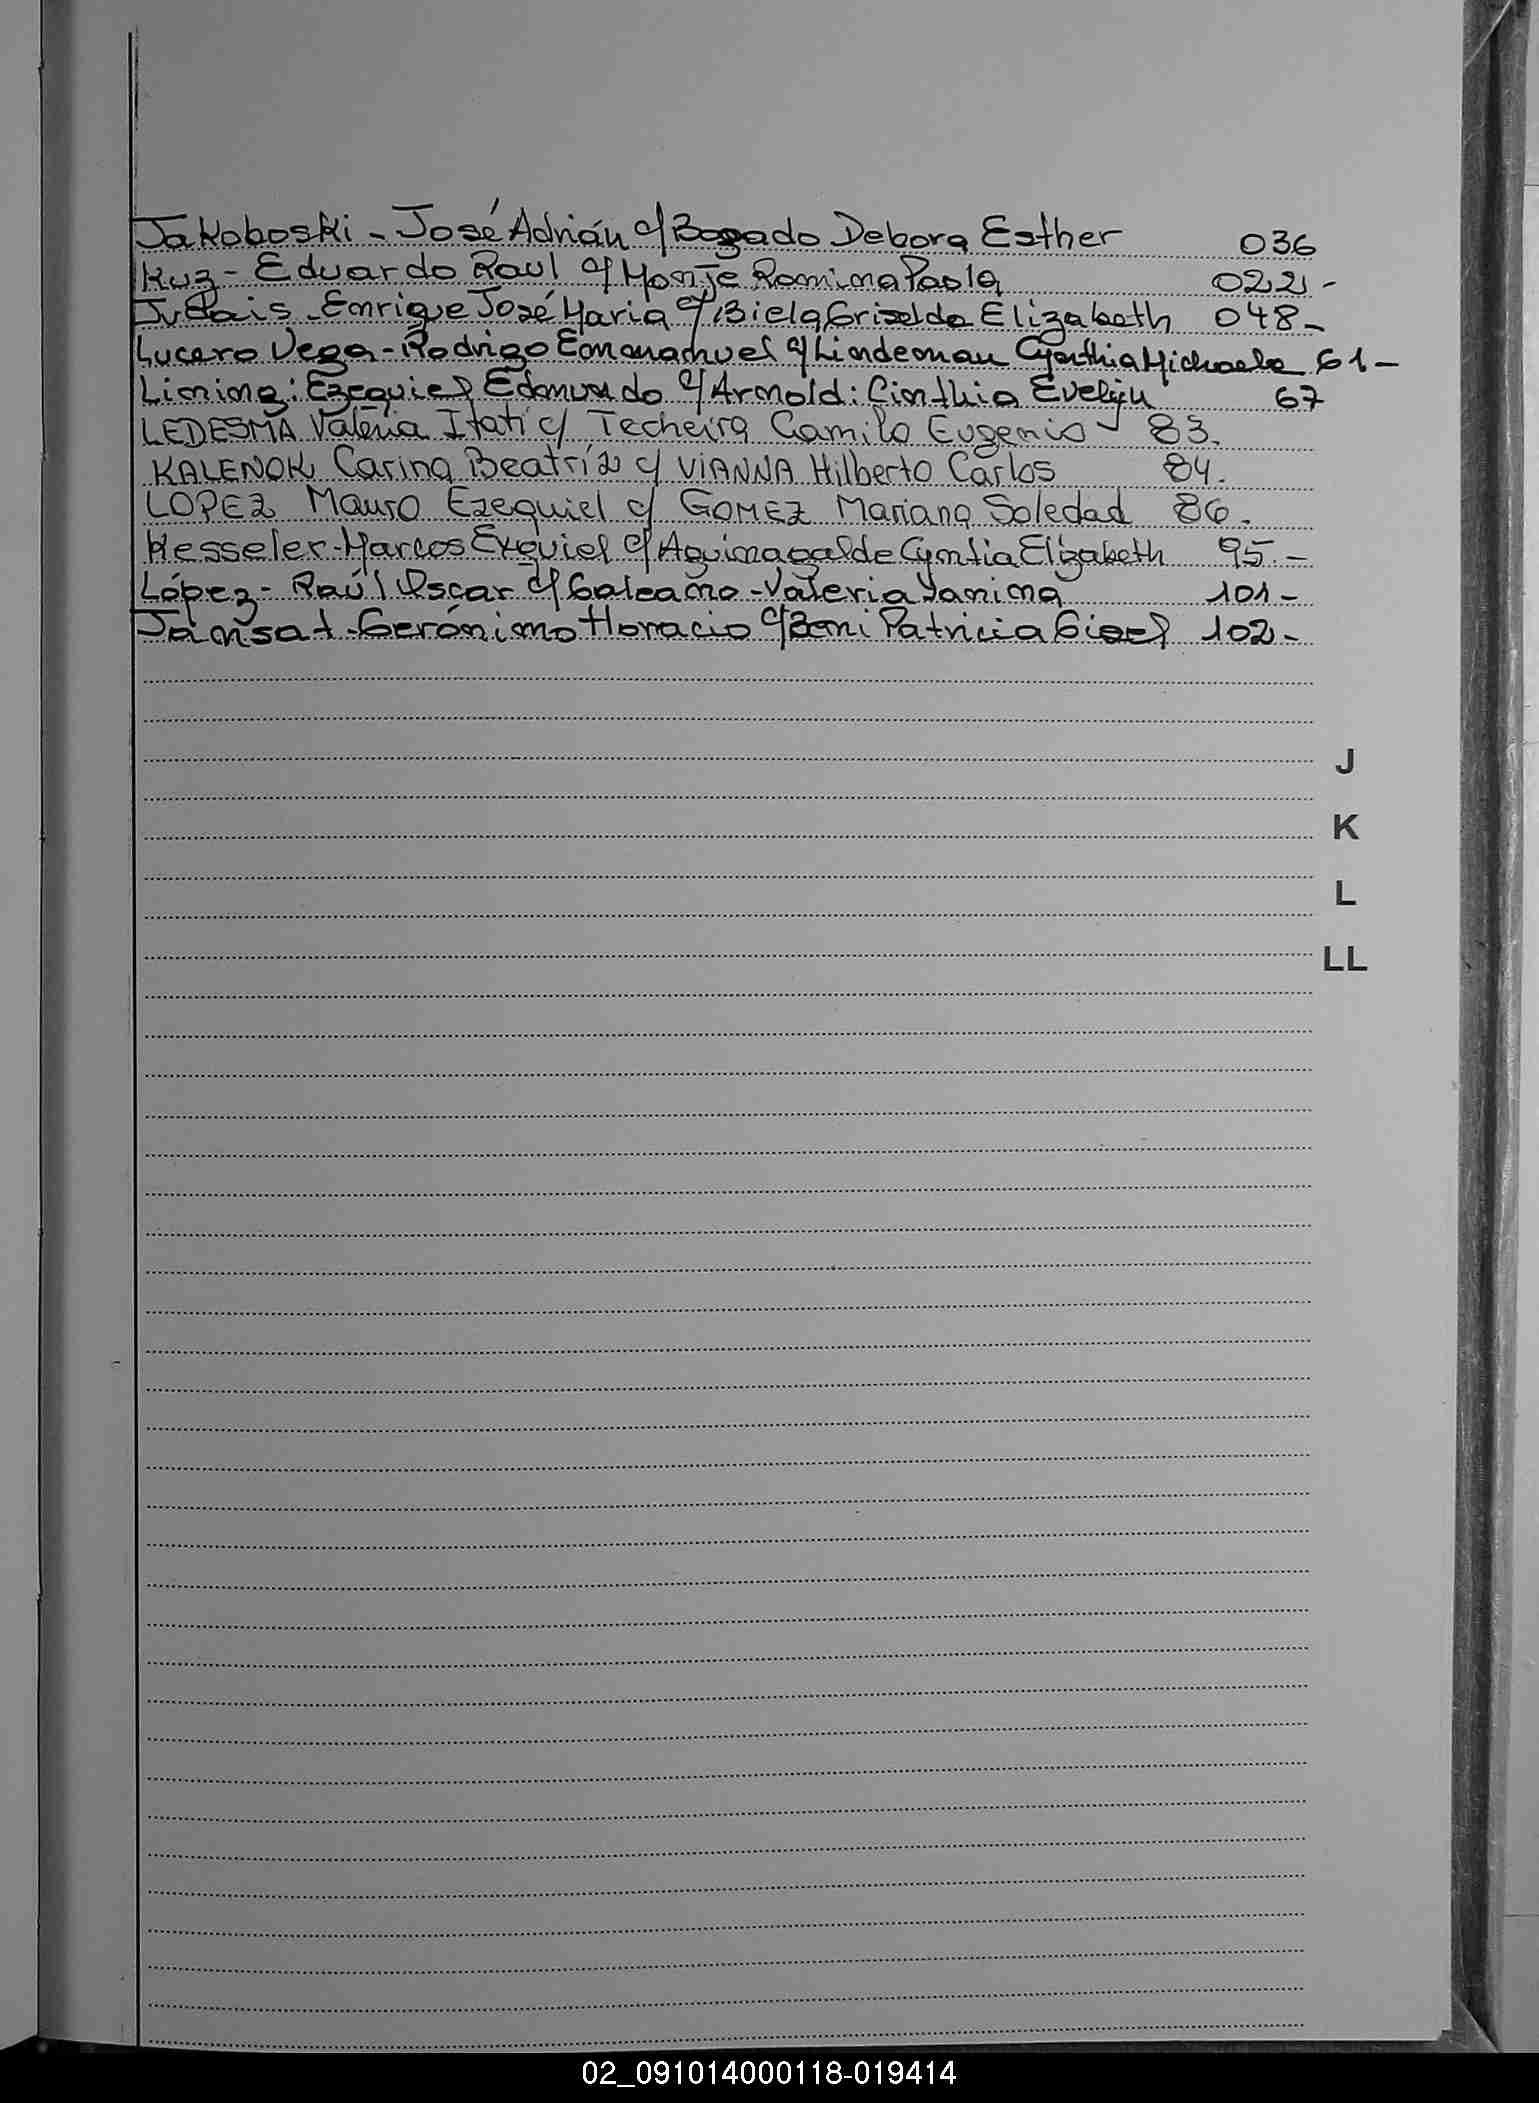 Jakoboski - José Adrián c/ Bogado Debora Esther 036
Kuz - Eduardo Raul c/ Monje Romina Paola 022 -
Judais - Enrique José Maria c/ Biela Griselda Elizabeth 048 -
Lucero Vega - Rodrigo Emmanuel c/ Lindeman Cynthia Michaela 61 -
Linina: Ezequiel Edmundo c/ Arnold: Cinthia Evelyn 67
LEDESMA Valeria Itatí c/ Techeira Camilo Eugenio - 83.
KALENOK Carina Beatríz c/ VIANNA Hilberto Carlos 84.
LOPEZ Mauro Ezequiel c/ GOMEZ Mariana Soledad 86.
Kesseler - Marcos Exequiel c/ Aguinagalde Cyntia Elizabeth 95. -
López - Raúl Oscar c/ Galeano - Valeria Yanina 101 -
Jansat - Gerónimo Horacio c/ Beni Patricia Gisel 102 -
J
K
L
LL
02_091014000118-019414